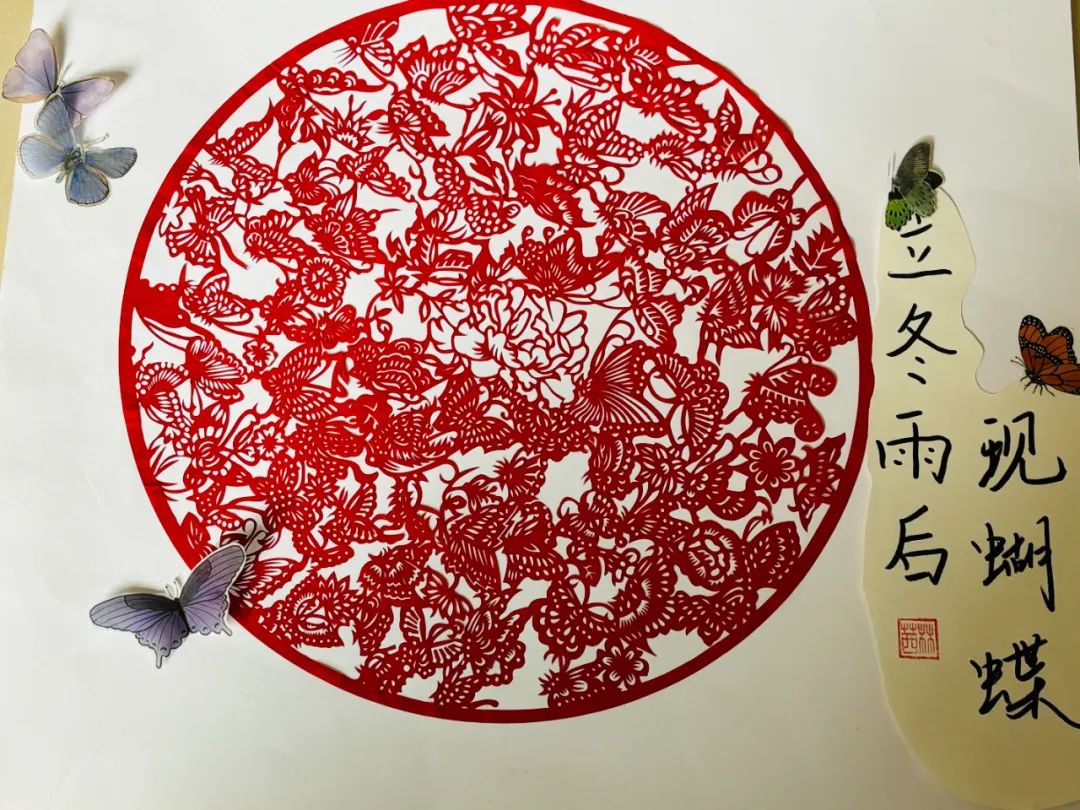 立冬雨后
现蝴蝶